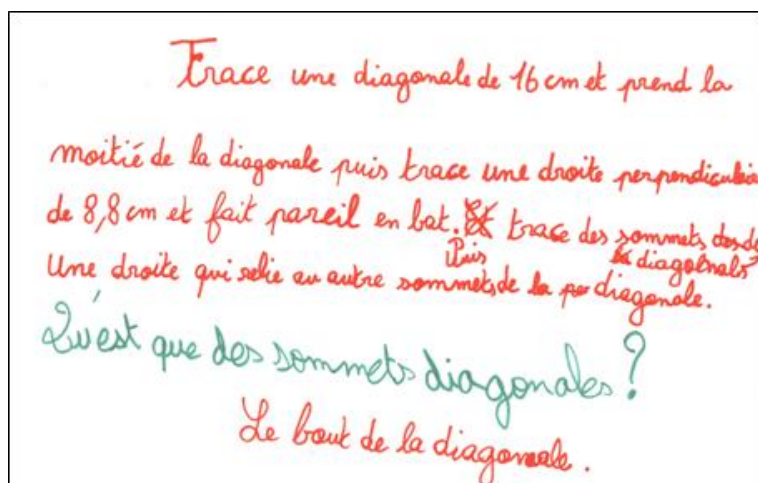 Trace une diagonale de 16 cm et prend la
moitié de la diagonale puis trace une droite perpendiculai
de 8,8 cm et fait pareil en bat. Puis trace des sommets des de
diagolnals
Une droite qui relie au autre sommets de la diagonale.
Qu'est que des sommets diagonales ?
Le bout de la diagonale.